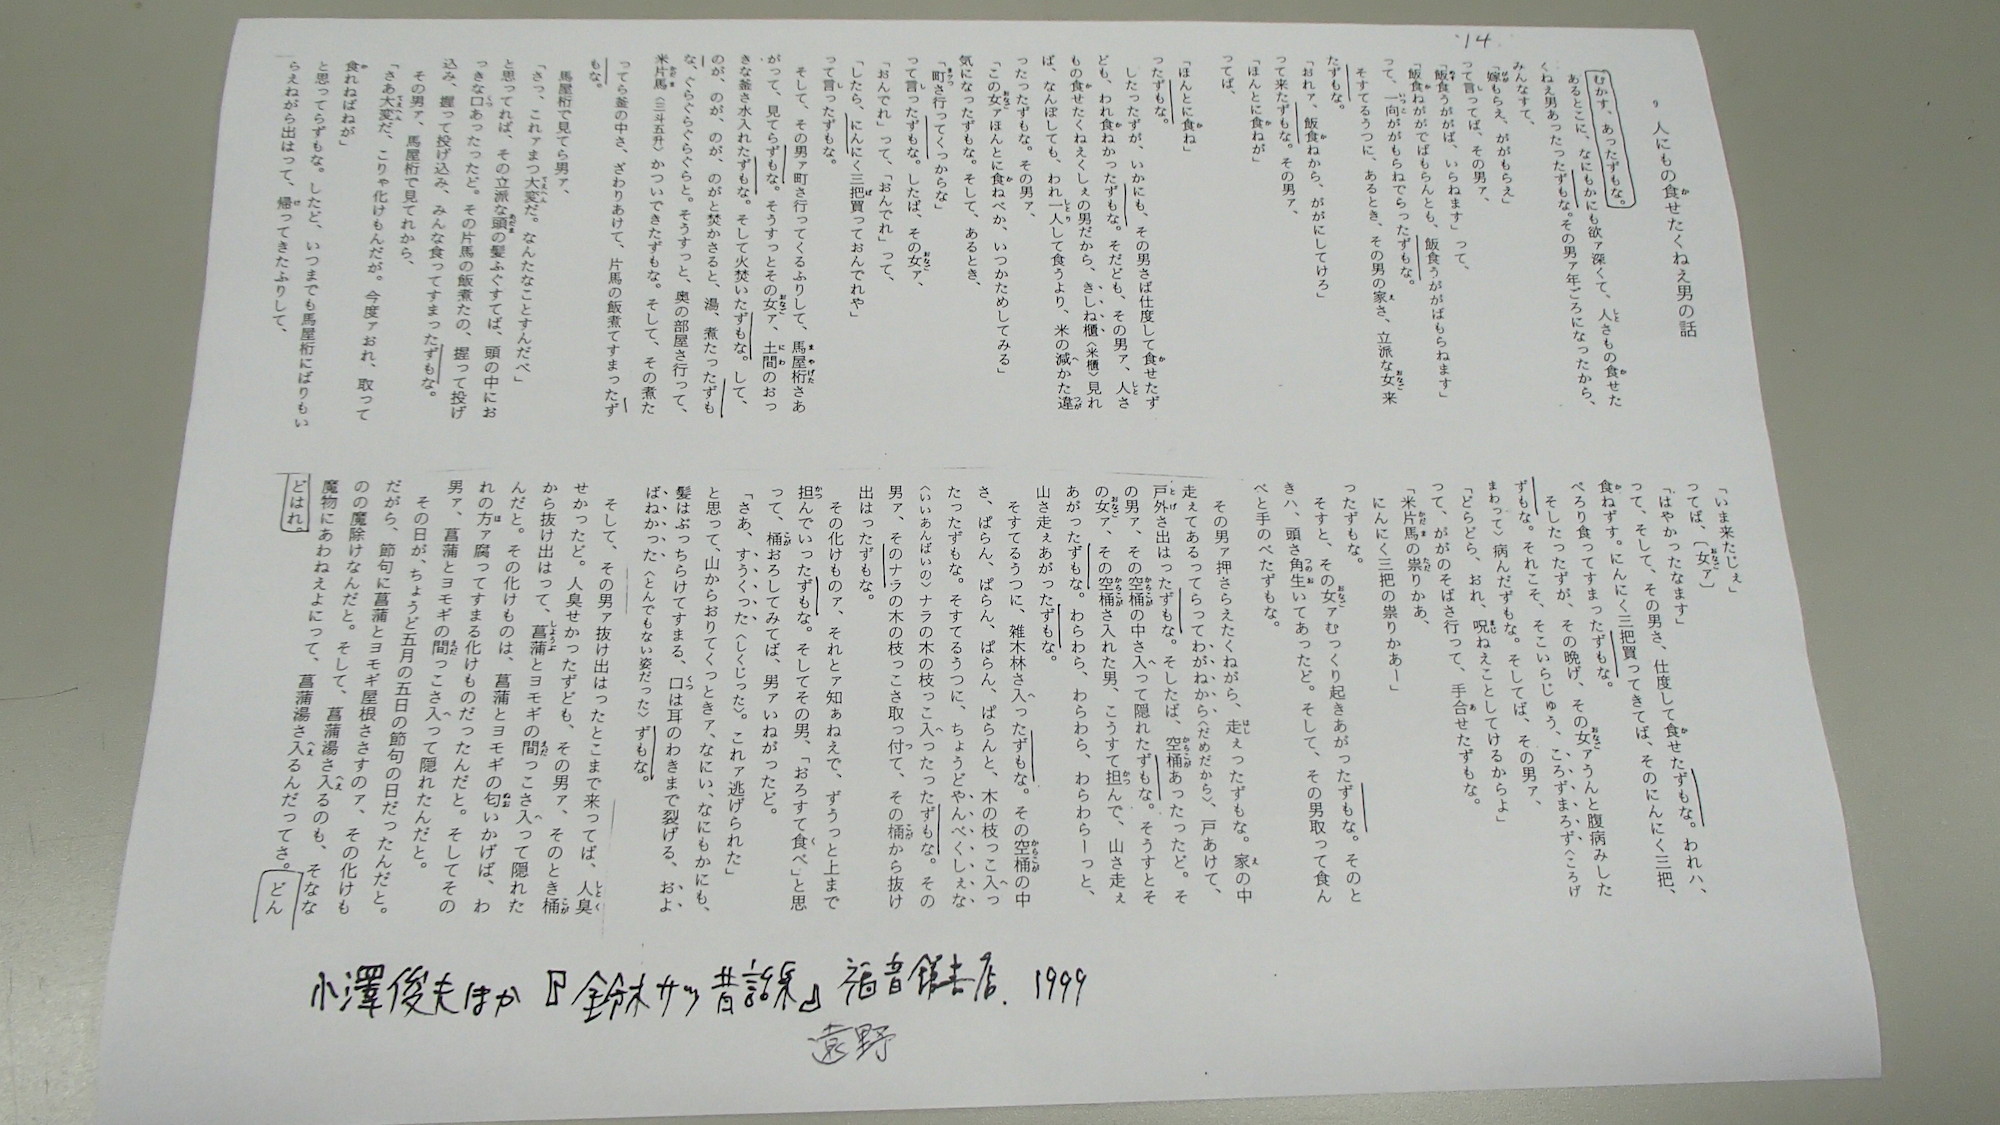 '14
人にもの食せたくねえ男の話
むかす、あったずもな。
あるとこに、なにもかにも欲ァ深くて、人さもの食せた
くねえ男あったったずもな。その男ァ年ごろになったから、
みんなすて、
「嫁もらえ、ががもらえ」
って言ってば、その男ァ、
「飯食うががば、いらねます」って、
「飯食ねががでばもらんとも、飯食うががばもらねます」
って、一向ががもらねでらったずもな。
そすてるうつに、あるとき、その男の家さ、立派な女来
たずもな。
「おれァ、飯食ねから、ががにしてけろ」
って来たずもな。その男ァ、
「ほんとに食ねが」
ってば、
「ほんとに食ね」
ったずもな。
したったずが、いかにも、その男さば仕度して食せたず
ども、われ食ねかったずもな。そだども、その男ァ、人さ
もの食せたくねえくしぇの男だから、きしね櫃〈米櫃〉見れ
ば、なんぼしても、われ一人して食うより、米の減かた違
ったったずもな。その男ァ、
「この女ァほんとに食ねべか、いつかためしてみる」
気になったずもな。そして、あるとき、
「町さ行ってくっからな」
って言ったずもな。したば、その女ァ、
「おんでれ」って、「おんでれ」って、
「したら、にんにく三把買っておんでれや」
って言ったずもな。
そして、その男ァ町さ行ってくるふりして、馬屋桁さあ
がって、見てらずもな。そうすっとその女ァ、土間のおっ
きな釜さ水入れたずもな。そして火焚いたずもな。して、
のが、のが、のが、のが、のがと焚かさると、湯、煮たったずも
な、ぐらぐらぐらぐらと。そうすっと、奥の部屋さ行って、
米片馬〈三斗五升〉かついできたずもな。そして、その煮た
ってら釜の中さ、ざわりあけて、片馬の飯煮てすまったず
もな。
馬屋桁で見てら男ァ、
「さっ、これァまつ大変だ。なんたなことすんだべ」
と思ってれば、その立派な頭の髪ふぐすてば、頭の中にお
っきな口あったったど。その片馬の飯煮たの、握って投げ
込み、握って投げ込み、みんな食ってすまったずもな。
その男ァ、馬屋桁で見てれから、
「さあ大変だ、こりゃ化けもんだが。今度ァおれ、取って
食れねばねが」
と思ってらずもな。したど、いつまでも馬屋桁にばりもい
らえねがら出はって、帰ってきたふりして、
「いま来たじぇ」
ってば、〔女ァ〕
「はやかったなます」
って、そして、その男さ、仕度して食せたずもな。われハ、
食ねずす。にんにく三把買ってきてば、そのにんにく三把、
ぺろり食ってすまったずもな。
そしたったずが、その晩げ、その女ァうんと腹病みした
ずもな。それこそ、そこいらじゅう、ころずまろず〈ころげ
まわって〉病んだずもな。そしてば、その男ァ、
「どらどら、おれ、呪ねえことしてけるからよ」
って、ががのそばさ行って、手合せたずもな。
「米片馬の祟りかあ、
にんにく三把の祟りかあー」
ったずもな。
そすと、その女ァむっくり起きあがったずもな。そのと
きハ、頭さ角生いてあったど。そして、その男取って食ん
べと手のべたずもな。
その男ァ押さらえたくねがら、走ぇったずもな。家の中
走ぇてあるってらってわがねから〈だめだから〉、戸あけて、
戸外さ出はったずもな。そしたば、空桶あったったど。そ
の男ァ、その空桶の中さ入って隠れたずもな。そうすとそ
の女ァ、その空桶さ入れた男、こうすて担んで、山さ走ぇ
あがったずもな。わらわら、わらわら、わらわらーっと、
山さ走ぇあがったずもな。
そすてるうつに、雑木林さ入ったずもな。その空桶の中
さ、ばらん、ばらん、ぱらん、ぱらんと、木の枝っこ入っ
たったずもな。そすてるうつに、ちょうどやんべくしぇな
〈いいあんばいの〉ナラの木の枝っこ入ったったずもな。その
男ァ、そのナラの木の枝っこさ取っ付て、その桶から抜け
出はったずもな。
その化けものァ、それとァ知ぁねえで、ずうっと上まで
担んでいったずもな。そしてその男、「おろすて食べ」と思
って、桶おろしてみてば、男ァいねがったど。
「さあ、すうくった〈しくじった〉。これァ逃げられた」
と思って、山からおりてくっときァ、なにい、なにもかにも、
髪はぶっちらけてすまる、口は耳のわきまで裂げる、およ
ばねかった〈とんでもない姿だった〉ずもな。
そして、その男ァ抜け出はったとこまで来ってば、人臭
せかったど。人臭せかったずども、その男ァ、そのとき桶
から抜け出はって、菖蒲とヨモギの間っこさ入って隠れた
んだと。その化けものは、菖蒲とヨモギの匂いかげば、わ
れの方ァ腐ってすまる化けものだったんだと。そしてその
男ァ、菖蒲とヨモギの間っこさ入って隠れたんだと。
その日が、ちょうど五月の五日の節句の日だったんだと。
だがら、節句に菖蒲とヨモギ屋根さすのァ、その化けも
のの魔除けなんだと。そして、菖蒲湯さ入るのも、そなな
魔物にあわねえよによって、菖蒲湯さ入るんだってさ。どん
どはれ。
小澤俊夫ほか『鈴木サツ昔話集』福音館書店. 1999
遠野